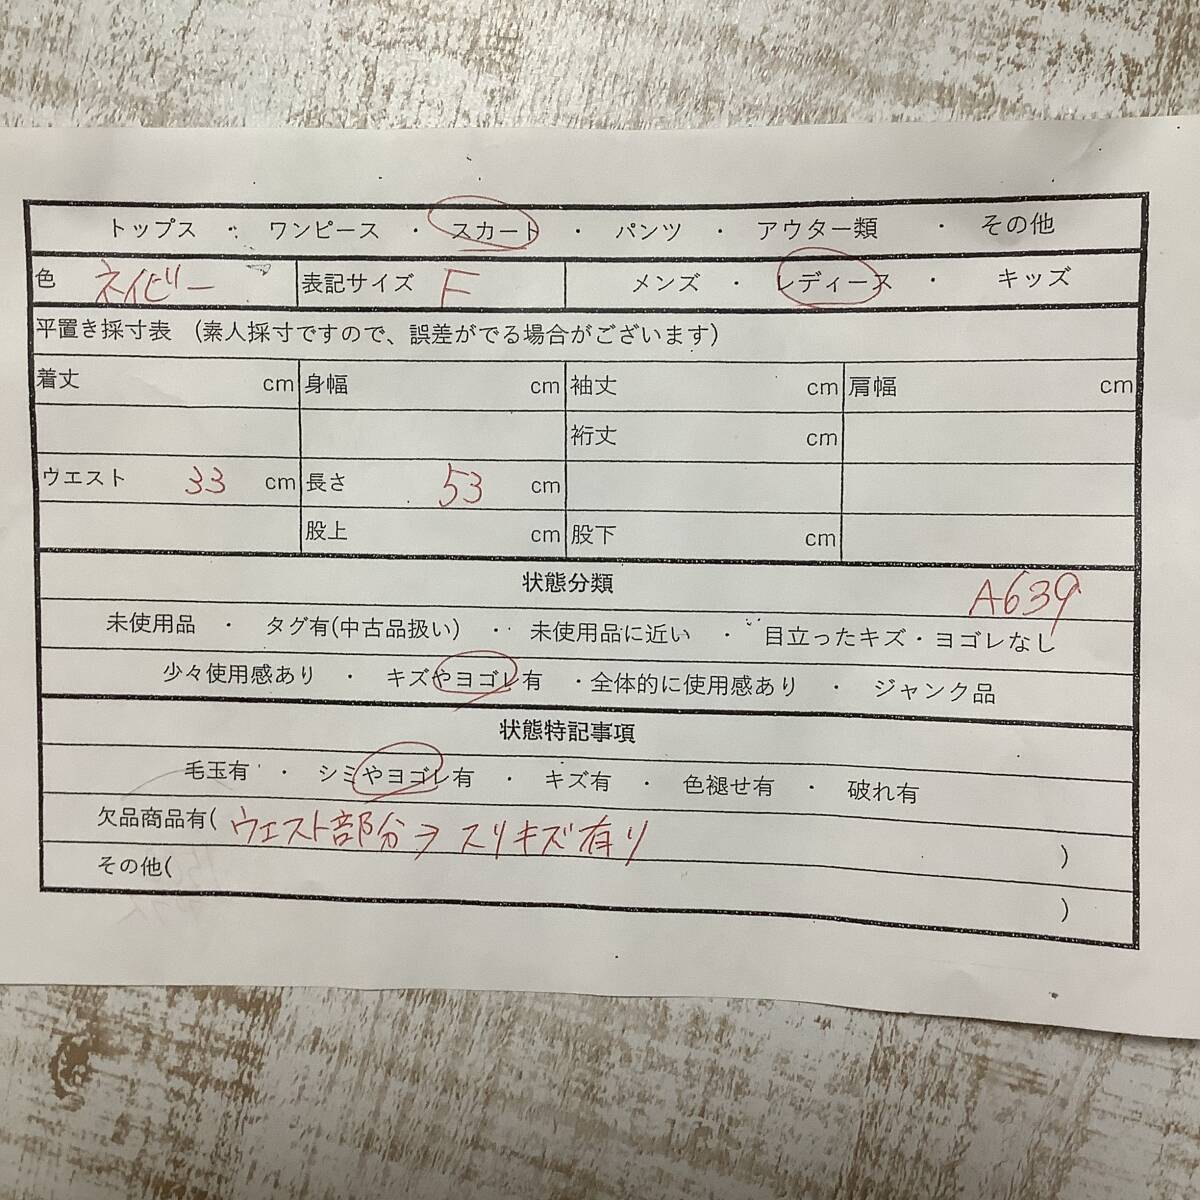 トップス ・ ワンピース ・ スカート ・ パンツ ・ アウター類 ・ その他
色 ネイビー 表記サイズ F メンズ ・ レディース ・ キッズ
平置き採寸表 (素人採寸ですので、誤差がでる場合がございます)
着丈 cm 身幅 cm 袖丈 cm 肩幅 cm
裄丈 cm
ウエスト 33 cm 長さ 53 cm
股上 cm 股下 cm
状態分類 A639
未使用品 ・ タグ有(中古品扱い) ・ 未使用品に近い ・ 目立ったキズ・ヨゴレなし
少々使用感あり ・ キズやヨゴレ有 ・全体的に使用感あり ・ ジャンク品
状態特記事項
毛玉有 ・ シミやヨゴレ有 ・ キズ有 ・ 色褪せ有 ・ 破れ有
欠品商品有( ウエスト部分→スリキズ有り )
その他( )